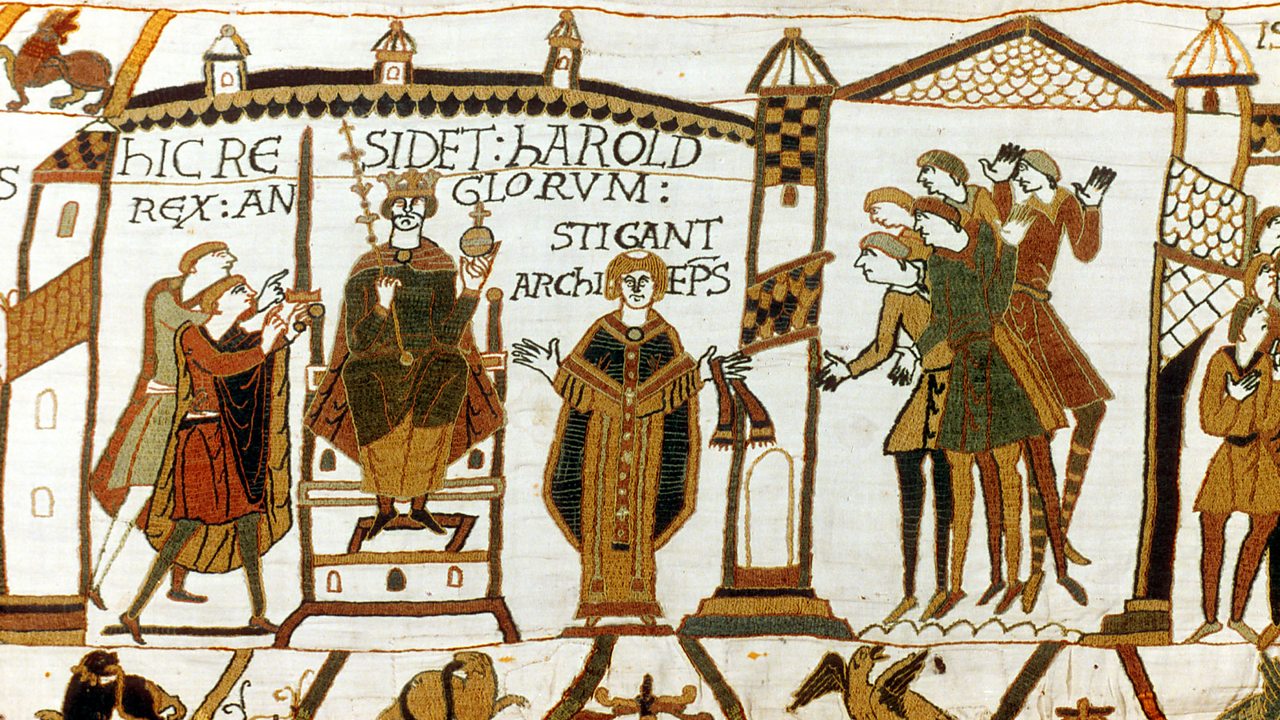 S
hIC RE SIDET : hAROLD
REX : AN GLORVM :
STIGANT
ARChI EPS
IS